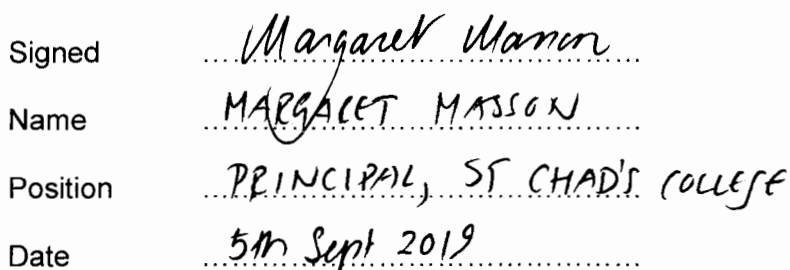 Signed Margaret Masson
Name MARGARET MASSON
Position PRINCIPAL, ST CHAD'S COLLEGE
Date 5th Sept 2019